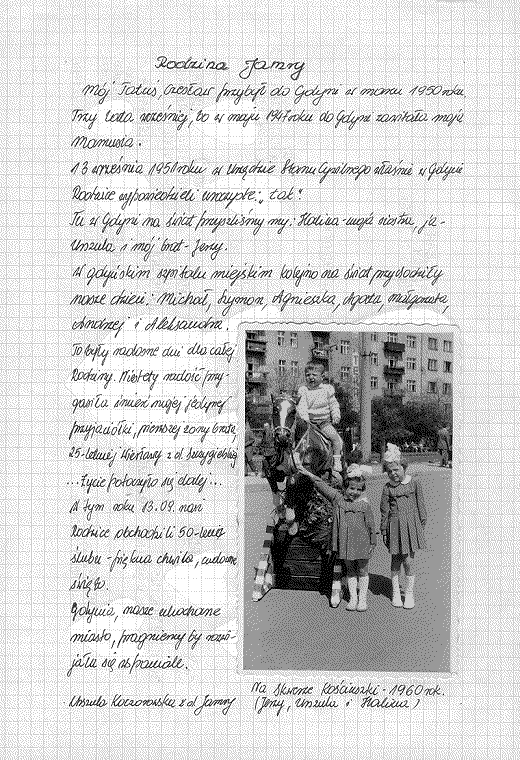 Rodzina Jamry
Mój Tatuś, Czesław przybył do Gdyni w marcu 1950 roku.
Trzy lata wcześniej, bo w maju 1947 roku do Gdyni zawitała moja
Mamusia.
13 września 1951 roku w Urzędzie Stanu Cywilnego właśnie w Gdyni
Rodzice wypowiedzieli uroczyste: „tak".
Tu w Gdyni na świat przyszliśmy my: Halina - moja siostra, ja -
Urszula i mój brat - Jerzy.
W gdyńskim szpitalu miejskim kolejno na świat przychodziły
nasze dzieci: Michał, Szymon, Agnieszka, Agata, Małgorzata,
Andrzej i Aleksandra.
To były radosne dni dla całej
Rodziny. Niestety radość przy-
gasiła śmierć mojej jedynej
przyjaciółki, pierwszej żony brata,
25-letniej Wiesławy z d.
...Życie potoczyło się dalej...
W tym roku 13.09. nasi
Rodzice obchodzili 50-lecie
ślubu - piękna chwila, cudowne
święto.
Gdynia, nasze ukochane
miasto, pragniemy by rozwi-
jała się wspaniale.
Urszula Koczorowska z d. Jamry
Na Skwerze Kościuszki - 1960 rok.
(Jerzy, Urszula i Halina)